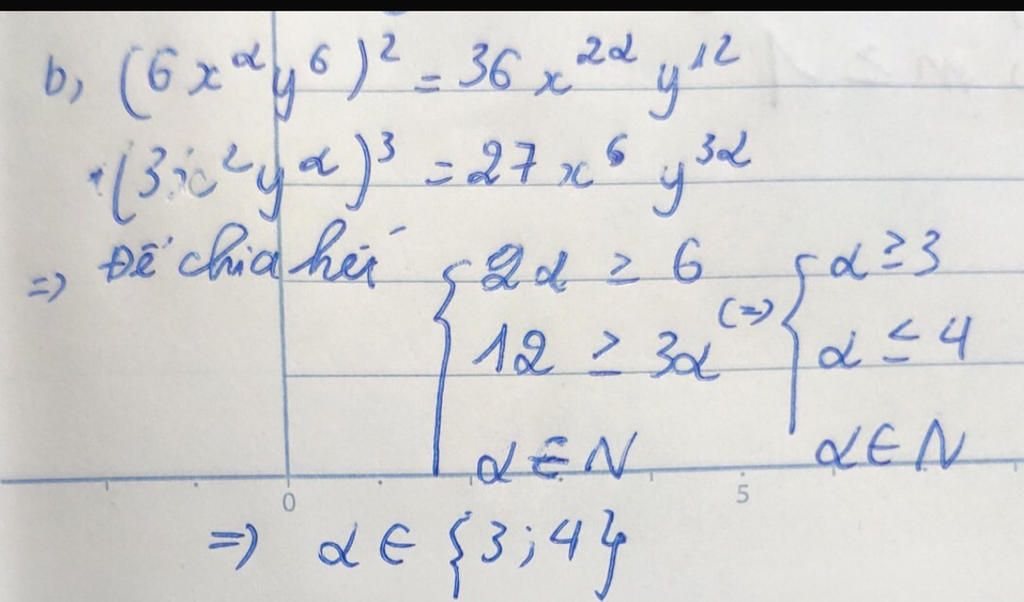 b, (6x^α y^6)^2 = 36 x^{2α} y^{12}
(3x^2 y^α)^3 = 27 x^6 y^{3α}
=> Để chia hết { 2α ≥ 6 (=> { α ≥ 3
12 ≥ 3α α ≤ 4
α ∈ N α ∈ N
0 5
=> α ∈ {3; 4}